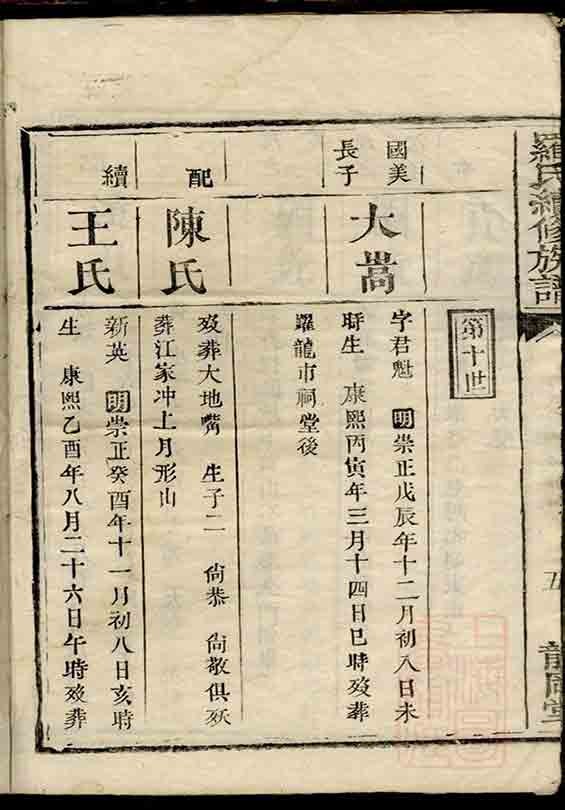 羅氏續修族譜
五
第十世
國美
長子
大嵩
字君魁 明崇正戊辰年十二月初八日未
時生 康熙丙寅年三月十四日巳時歿葬
躍龍市祠堂後
配
陳氏
歿葬大地嘴 生子二 尙恭 尙敬俱殀
葬江家冲上月形山
續
王氏
新英 明崇正癸酉年十一月初八日亥時
生 康熙乙酉年八月二十六日午時歿葬